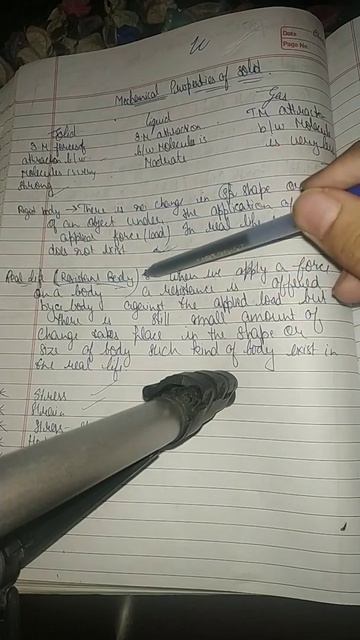 Date
Page No.
Mechanical Properties of solid
Solid
liquid
Gas
I.M forces of
attraction b/w
Molecules is very
strong
I.M attraction
b/w Molecule is
Modrate
I.M attraction
b/w Molecule
is very
Rigid body → There is no change in shape or
of an object under the application of
applied force (load) In real life
does not exist
Real life (Resistan body) when we apply a force
on a body, a resistance is offered
by body against the applied load but
there is still small amount of
change takes place in the shape or
size of body such kind of body exist in
the real life
Stress
Strain
Stress-